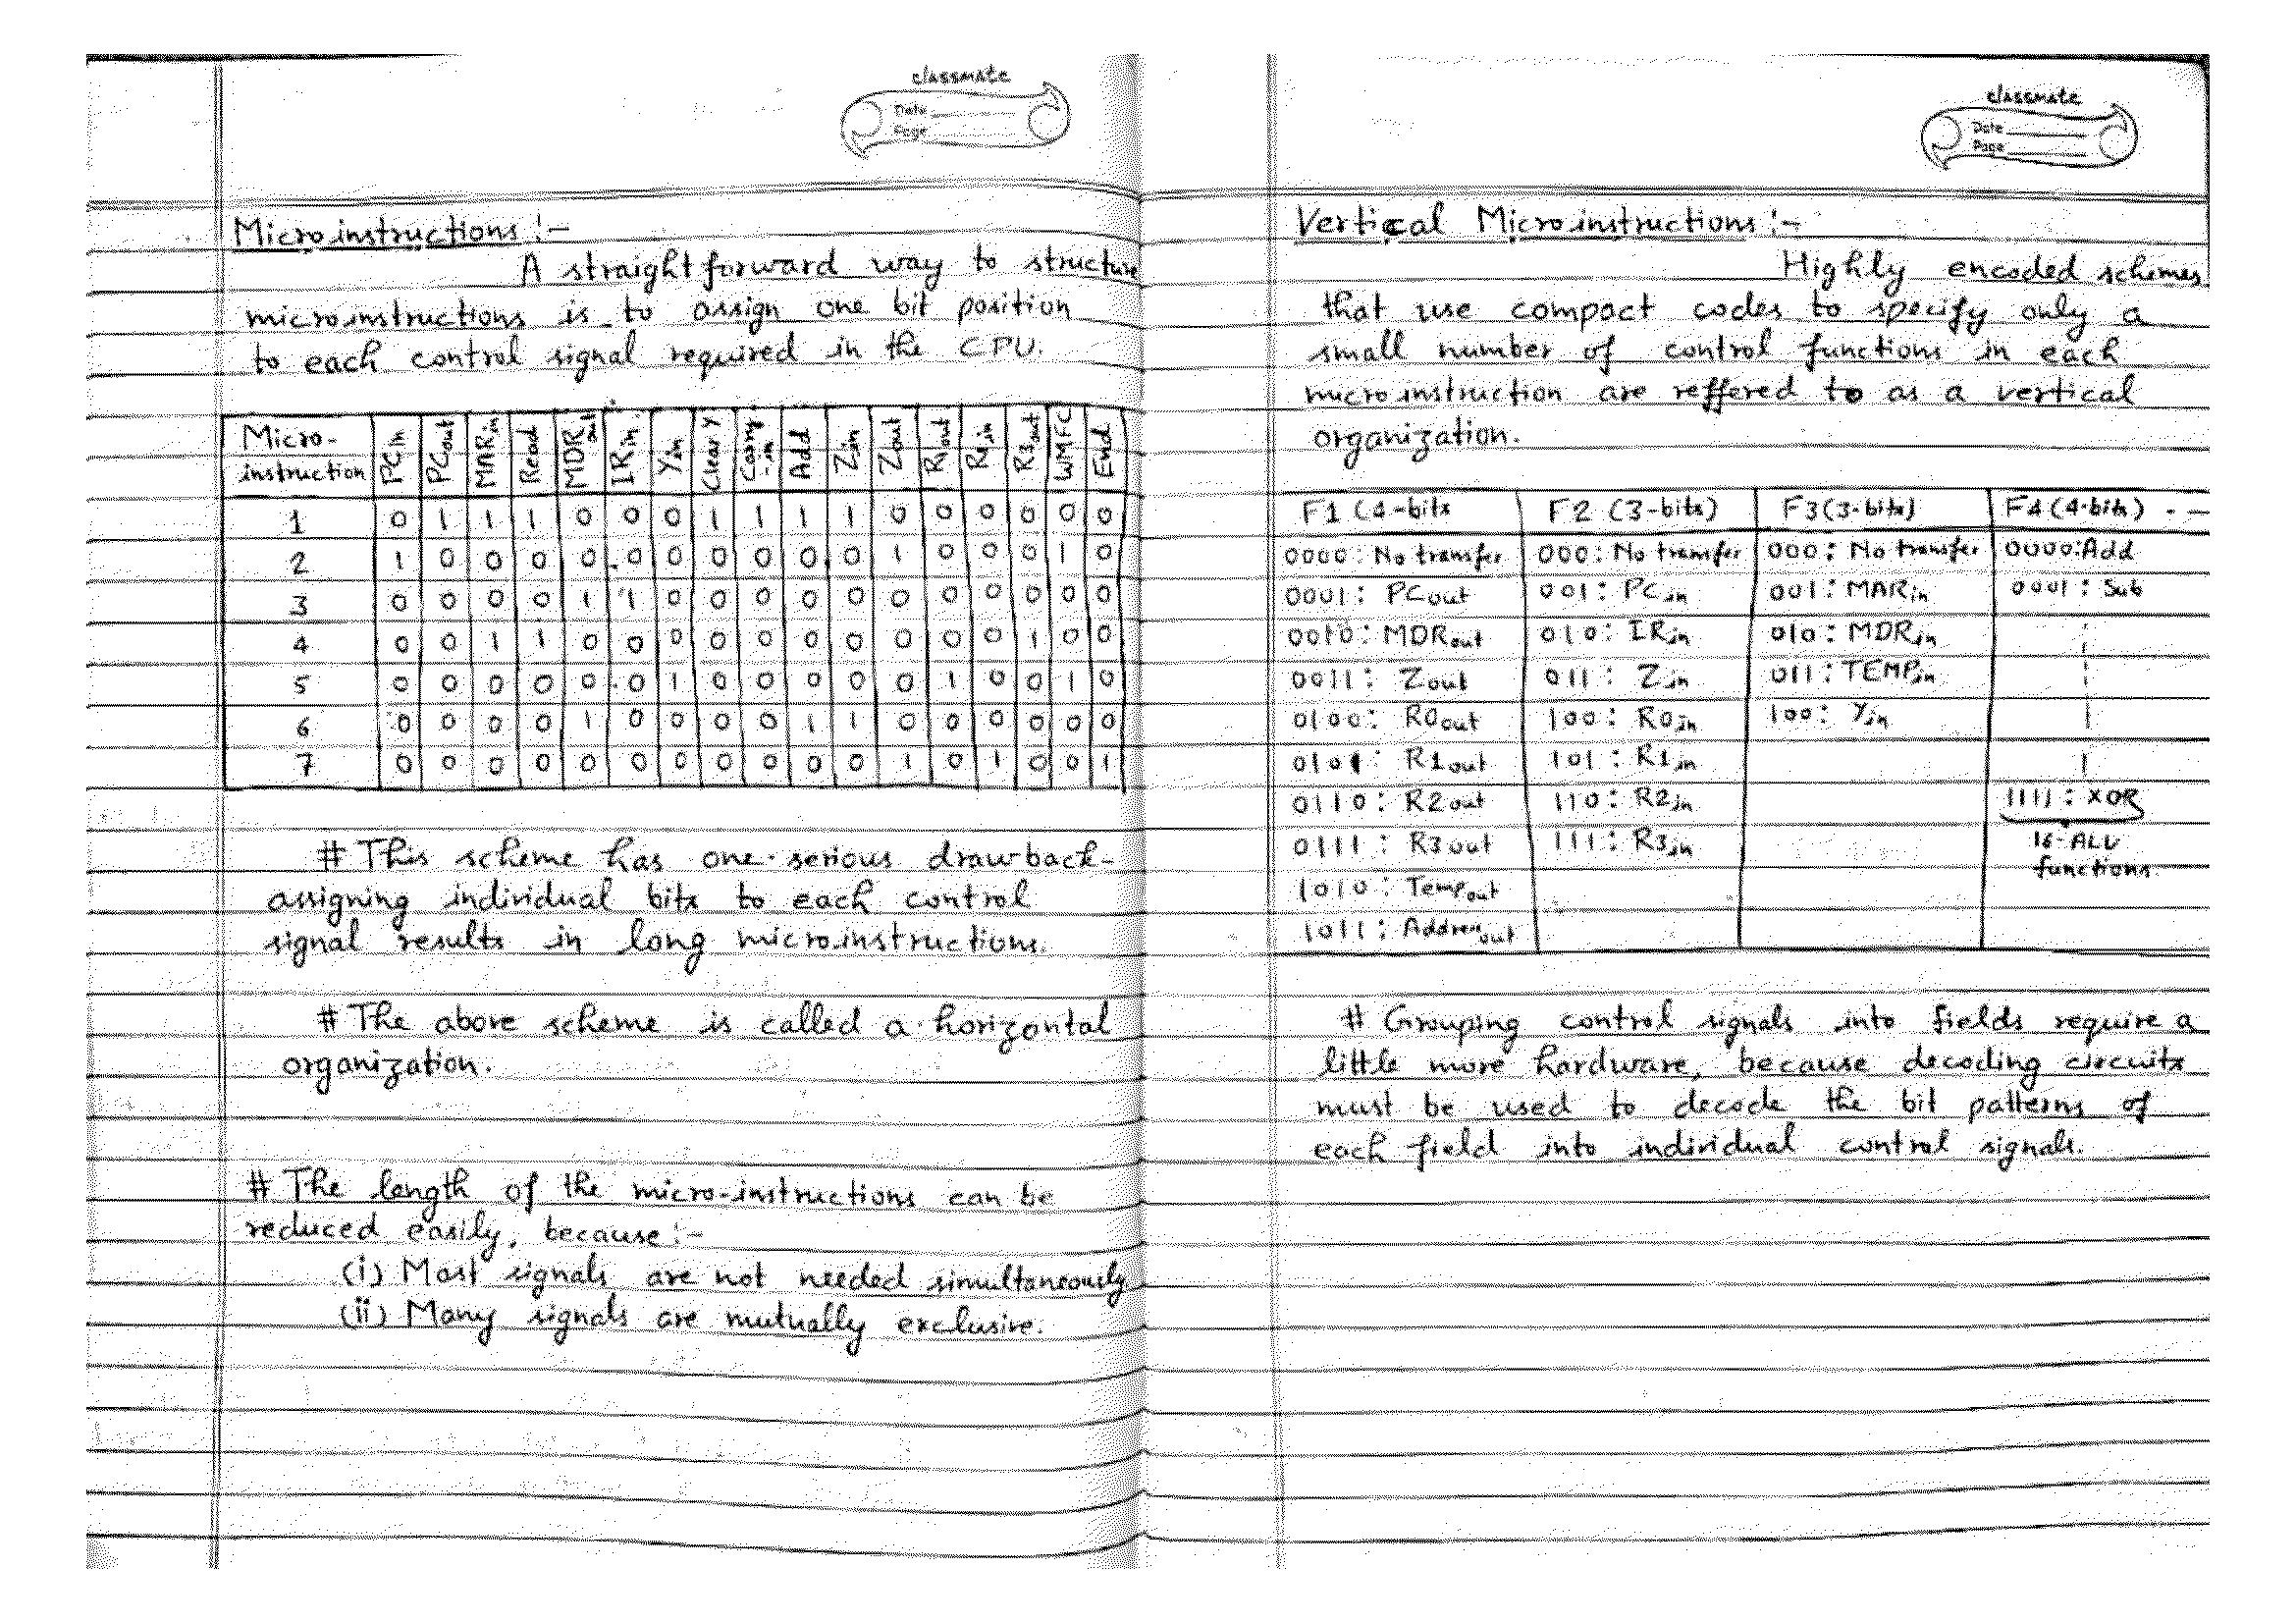 classmate
Date
Page
Microinstructions :-
A straight forward way to structure
microinstructions is to assign one bit position
to each control signal required in the CPU.
Micro-instruction | PCin | PCout | MARin | Read | MDRout | IRin | Yin | Clear Y | Carry-in | Add | Zin | Zout | R1out | R1in | R3out | WMFC | End
1 0 1 1 1 0 0 0 1 1 1 1 0 0 0 0 0 0
2 1 0 0 0 0 0 0 0 0 0 0 1 0 0 0 1 0
3 0 0 0 0 1 1 0 0 0 0 0 0 0 0 0 0 0
4 0 0 1 1 0 0 0 0 0 0 0 0 0 0 1 0 0
5 0 0 0 0 0 0 1 0 0 0 0 0 1 0 0 1 0
6 0 0 0 0 1 0 0 0 0 1 1 0 0 0 0 0 0
7 0 0 0 0 0 0 0 0 0 0 0 1 0 1 0 0 1
# This scheme has one serious drawback-
assigning individual bits to each control
signal results in long microinstructions.
# The above scheme is called a horizontal
organization.
# The length of the micro-instructions can be
reduced easily, because :-
(i) Most signals are not needed simultaneously
(ii) Many signals are mutually exclusive.
classmate
Date
Page
Vertical Microinstructions :-
Highly encoded schemes
that use compact codes to specify only a
small number of control functions in each
microinstruction are reffered to as a vertical
organization.
F1 (4-bits | F2 (3-bits) | F3 (3-bits) | F4 (4-bits) - -
0000: No transfer | 000: No transfer | 000: No transfer | 0000: Add
0001: PCout | 001: PCin | 001: MARin | 0001: Sub
0010: MDRout | 010: IRin | 010: MDRin
0011: Zout | 011: Zin | 011: TEMPin
0100: R0out | 100: R0in | 100: Yin
0101: R1out | 101: R1in
0110: R2out | 110: R2in | 1111: XOR
0111: R3out | 111: R3in | 16-ALU
functions
1010: Tempout
1011: Addressout
# Grouping control signals into fields require a
little more hardware, because decoding circuits
must be used to decode the bit patterns of
each field into individual control signals.